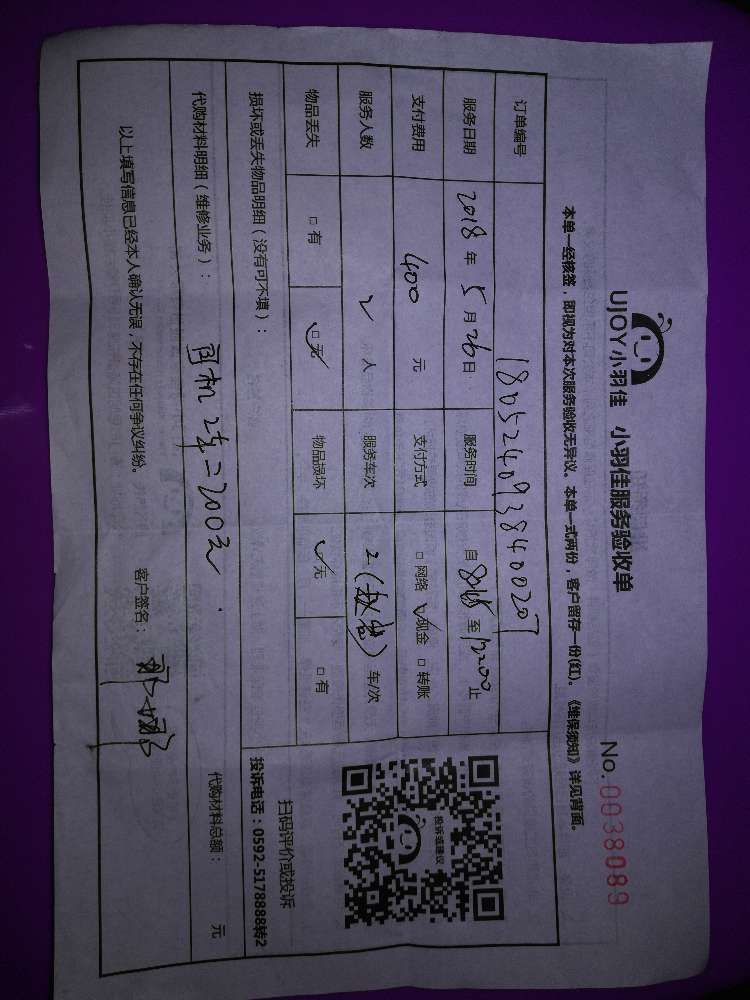 UJOY小羽佳 小羽佳服务验收单
No.0038089
本单一经核签，即视为对本次服务验收无异议。本单一式两份，客户留存一份(红)。《维保须知》详见背面。
订单编号 180524093840020
服务日期 2018 年 5 月 26 日 服务时间 自 至 12:00 止
支付费用 400 元 支付方式 □ 网络 ✓现金 □ 转账
服务人数 2 人 服务车次 2 ( ) 车/次
物品丢失 □ 有 □ 无 物品损坏 □ 无 □ 有
投诉或建议
扫码评价或投诉
投诉电话：0592-5178888转2
损坏或丢失物品明细（没有可不填）：
代购材料明细（维修业务）： 2 二200元
代购材料总额： 元
以上填写信息已经本人确认无误，不存在任何争议纠纷。 客户签名：